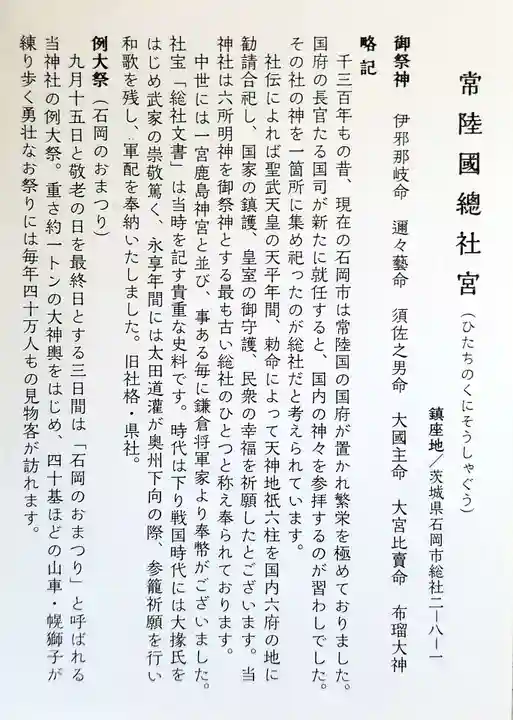 常陸國總社宮（ひたちのくにそうしゃぐう）
鎮座地／茨城県石岡市総社二－八－一
御祭神　伊邪那岐命　邇々藝命　須佐之男命　大國主命　大宮比賣命　布瑠大神
略記
　千三百年もの昔、現在の石岡市は常陸国の国府が置かれ繁栄を極めておりました。
国府の長官たる国司が新たに就任すると、国内の神々を参拝するのが習わしでした。
その社の神を一箇所に集め祀ったのが総社だと考えられています。
　社伝によれば聖武天皇の天平年間、勅命によって天神地祇六柱を国内六府の地に
勧請合祀し、国家の鎮護、皇室の御守護、民衆の幸福を祈願したとございます。当
神社は六所明神を御祭神とする最も古い総社のひとつと称え奉られております。
　中世には一宮鹿島神宮と並び、事ある毎に鎌倉将軍家より奉幣がございました。
社宝「総社文書」は当時を記す貴重な史料です。時代は下り戦国時代には大掾氏を
はじめ武家の崇敬篤く、永享年間には太田道灌が奥州下向の際、参籠祈願を行い
和歌を残し、軍配を奉納いたしました。旧社格・県社。
例大祭（石岡のおまつり）
　九月十五日と敬老の日を最終日とする三日間は「石岡のおまつり」と呼ばれる
当神社の例大祭。重さ約一トンの大神輿をはじめ、四十基ほどの山車・幌獅子が
練り歩く勇壮なお祭りには毎年四十万人もの見物客が訪れます。